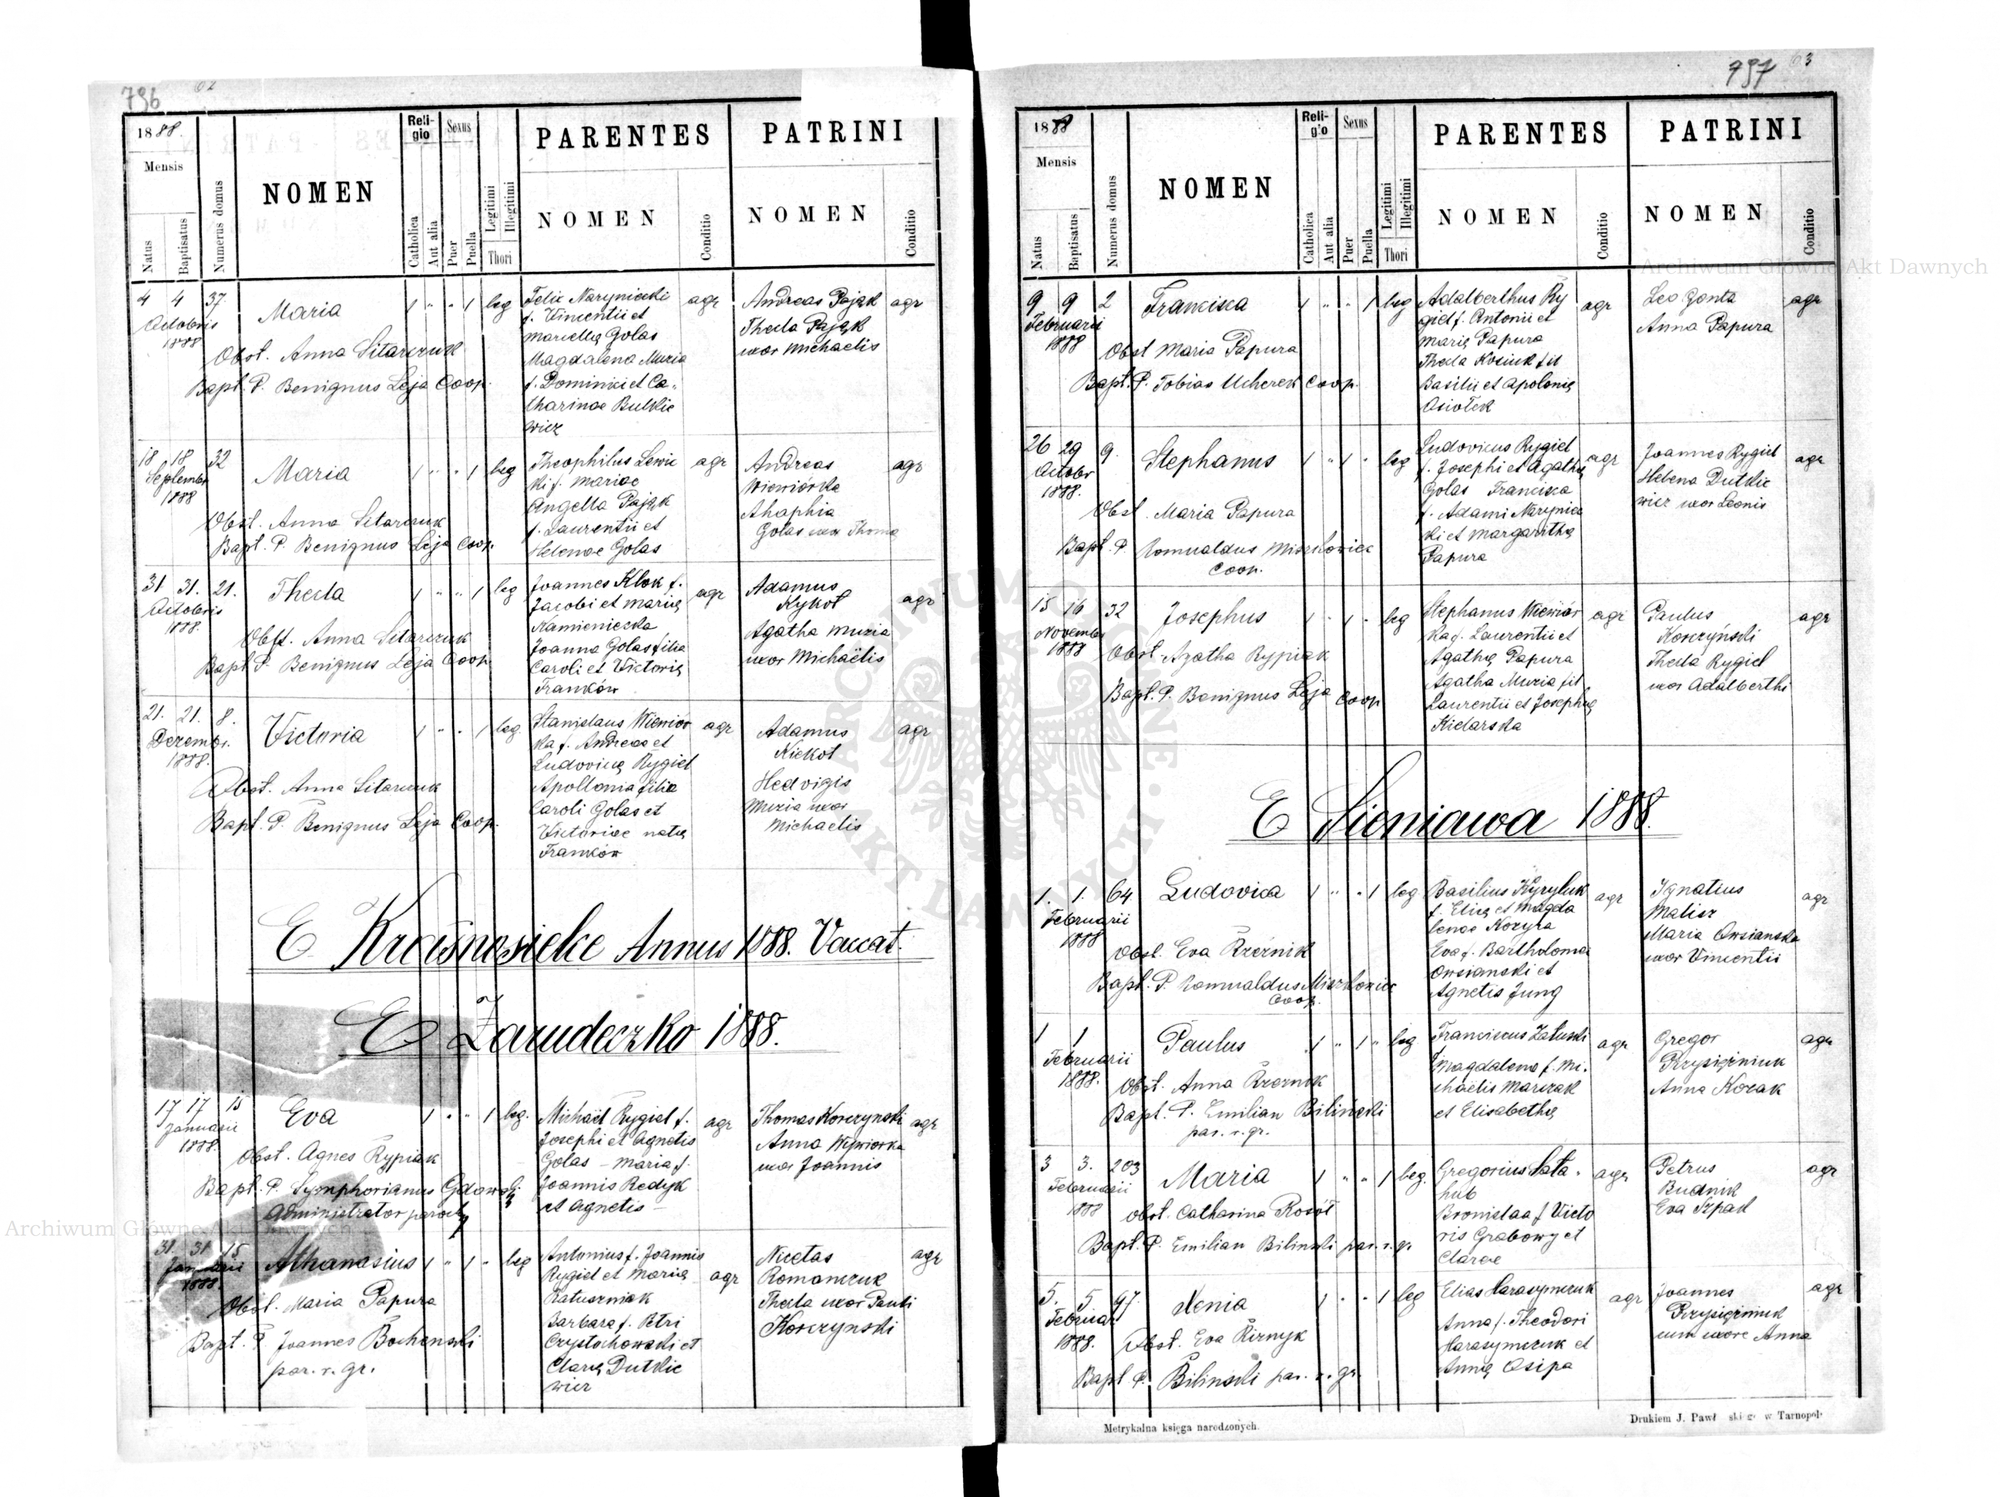 796
62
1888.
Mensis
Natus
Baptisatus
Numerus domus
NOMEN
Reli-
gio
Catholica
Aut alia
Sexus
Puer
Puella
Legitimi
Illegitimi
Thori
PARENTES
NOMEN
Conditio
PATRINI
NOMEN
Conditio
4 4 37.
Octobris
1888
Maria
1 " " 1 leg
Obst. Anna Sitarczuk
Bapt. P. Benignus Leja Coop.
Felix Naryniecki
f. Vincentii et
Mariellę Golas
Magdalena Muzia
f. Dominici et Ca-
tharinae Butkie
wicz
agr
Andreas Pająk
Thecla Pająk
uxor Michaelis
agr
18 18 32
Septembr
1888
Maria
1 " " 1 leg
Obst. Anna Sitarczuk
Bapt. P. Benignus Leja Coop.
Theophilus Lewic
ki f. Mariae
Angella Pająk
f. Laurentii et
Helenae Golas
agr
Andreas
Wiewiórka
Ahaphia
Golas uxor Thomę
agr
31 31. 21.
Octobris
1888.
Thecla
1 " " 1 leg
Obst. Anna Sitarczuk
Bapt. P. Benignus Leja Coop
Joannes Klok f.
Jacobi et Marię
Kamieniecka
Joanna Golas filia
Caroli et Victorię
Franków
agr
Adamus
Kykot
Agatha Muzia
uxor Michaëlis
agr
21. 21. 8.
Dezembr.
1888.
Victoria
1 " " 1 leg.
Obst. Anna Sitarczuk
Bapt. P. Benignus Leja Coop.
Stanislaus Wiewiór
ka f. Andreas et
Ludovicę Rygiel
Apollonia filia
Caroli Golas et
Victoriae natę
Franków
agr
Adamus
Kiekot
Hedvigis
Muzia uxor
Michaelis
agr
E Krasnosielce Annus 1888. Vaccat.
E Zarudeczko 1888.
17 17 15
Januarii
1888.
Eva
1 " " 1 leg.
Obst. Agnes Rypiak
Bapt. P. Symphorianus
Administrator
Michaël Rygiel f.
Josephi et Agnetis
Golas – Maria f.
Joannis Redyk
et Agnetis –
agr
Thomas Korczynski
Anna Wiwiorka
uxor Joannis
agr
31. 31. 15
Januarii
1888.
Athanasius
1 " 1 " leg
Obst. Maria Papura
Bapt. P. Joannes Bochenski
par. r. gr.
Antonius f. Joannis
Rygiel et Marię
Ratuszniak
Barbara f. Petri
Czystochowski et
Clarę Dutkie
wicz
agr
Nicetas
Romanczuk
Thecla uxor Pauli
Korczynski
agr
797
63
1888
Mensis
Natus
Baptisatus
Numerus domus
NOMEN
Reli-
gio
Catholica
Aut alia
Sexus
Puer
Puella
Legitimi
Illegitimi
Thori
PARENTES
NOMEN
Conditio
PATRINI
NOMEN
Conditio
9 9 2
Februarii
1888
Francisca
1 " " 1 leg
Obst Maria Papura
Bapt. P. Tobias Ucherek Coop.
Adalberthus Ry
giel f. Antonii et
Marię Papura
Thecla Kosiuk fil
Basilii et Apolonię
Osiołek
agr
Leo Zonta
Anna Papura
agr
26 29 9.
Octobr
1888.
Stephanus
1 " 1 " leg
Obst. Maria Papura
Bapt. P Romualdus Miszkowicz
Coop.
Ludovicus Rygiel
f. Josephi et Agathę
Golas Francisca
f. Adami Narynic
ki et Margarithę
Papura
agr
Joannes Rygiel
Helena Dutkie
wicz uxor Leonis
agr
15 16 32
Novembr
1888
Josephus
1 " 1 " leg
Obst. Agatha Rypiak
Bapt. P. Benignus Leja Coop
Stephanus Wiewiór
ka f. Laurentii et
Agathę Papura
Agatha Muzia fil
Laurentii et Josephę
Kielarska
agr
Paulus
Korczyński
Thecla Rygiel
uxor Adalberthi
agr
E Sieniawa 1888.
1. 1. 64
Februarii
1888
Ludovica
1 " " 1 leg
Obst. Eva Rzeznik
Bapt. P. Romualdus Miszkowicz
Coop.
Basilius Kyryluk
f. Elię et Magda
lenae Kozyra
Eva f. Bartholomei
Owsianski et
Agnetis Jung
agr
Ignatius
Malisz
Maria Owsianska
uxor Vincentii
agr
1 1
Februarii
1888.
Paulus
1 " 1 " leg
Obst. Anna Rzeznik
Bapt. P. Emilian Biliński
par. r. gr.
Franciscus Załuski
Magdalena f. Mi-
chaelis Marczak
et Elisabethę
agr
Gregor
Przysiężniuk
Anna Kozak
agr
3 3. 203
Februarii
1888
Maria
1 " " 1 leg.
Obst. Catharina Rosół
Bapt. P. Emilian Bilinski par. r. gr.
Gregorius Sata-
hub
Bronislaa f Victo
ris Grabowy et
Clarae
agr
Petrus
Budnik
Eva Szpak
agr
5. 5 97.
Februar
1888.
Xenia
1 " " 1 leg
Obst. Eva Riznyk
Bapt P. Bilinski par. r. gr.
Elias Harasymczuk
Anna f. Theodori
Harasymczuk et
Annę Osipa
agr
Joannes
Przysiężniuk
cum uxore Anna
agr
Metrykalna księga narodzonych.
Drukiem J. Pawł skieg w Tarnopol
Archiwum Główne Akt Dawnych
Archiwum Główne Akt Dawnych
ARCHIWUM GŁÓWNE AKT DAWNYCH